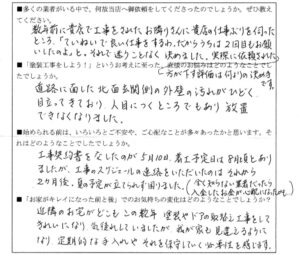 ■多くの業者がいる中で、何故当店へ御依頼をしてくださったのでしょうか。ぜひ教えてください。
数年前に貴店で工事をされたお隣りさんに貴店の仕事ぶりを伺ったところ、「ていねいで良い仕事をするわ。だからうちは2回目もお願いしたのよ」と。それで迷うことなく決めました。実際に依頼された方が下す評価は何よりの決め手です。
■「塗装工事をしよう!」というお考えに至った
でしたでしょうか。
道路に面した北面玄関側の外壁の汚れがひどく
目立ってきており、人目につくところでもあり放置
できなくなりました。
■始められる前は、いろいろとご不安や、ご心配なことが多々あったかと思います。それはどのようなことでしたでしょうか。
工事契約書をなしたのが5月10日、着工予定日は8月頃とあり
ましたが、工事のスケジュールの連絡をいただいたのは、それから
2ヶ月後、夏の予定が立てられず困りました。(全く知らない業者だったら入金したお金が心配になったかも)
■「お家がキレイになった前と後」でのお気持ちの変化はどのようなことでしょうか?
近隣のお宅がどこもこの数年 塗装やドアの取替え工事をして
きれいになり 気後れしていましたが 我が家も見違えるように
なり、定期的な手入れやそれを保守していく必要性を感じます。